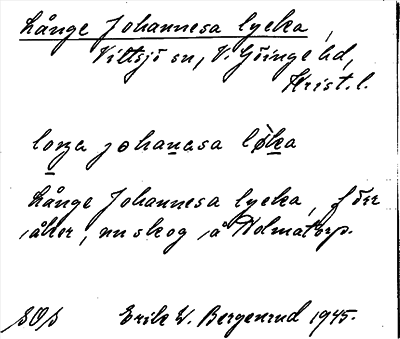 Långe Johannesa lycka,
Vittsjö sn, V. Göinge hd,
Krist. l.
långe johanesa løka
Långe Johannesa lycka, förr
åker, nu skog å Holmatorp.
Erik W. Bergenrud 1945.